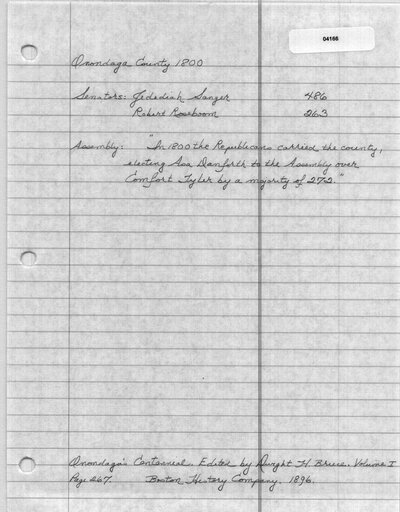 04166
Onondaga County 1800
Senators: Jedediah Sanger 486
Robert Roseboom 263
Assembly: "In 1800 the Republicans carried the county,
electing Asa Danforth to the Assembly over
Comfort Tyler by a majority of 272."
Onondaga's Centennial. Edited by Dwight H. Bruce. Volume I
Page 267. Boston History Company. 1896.